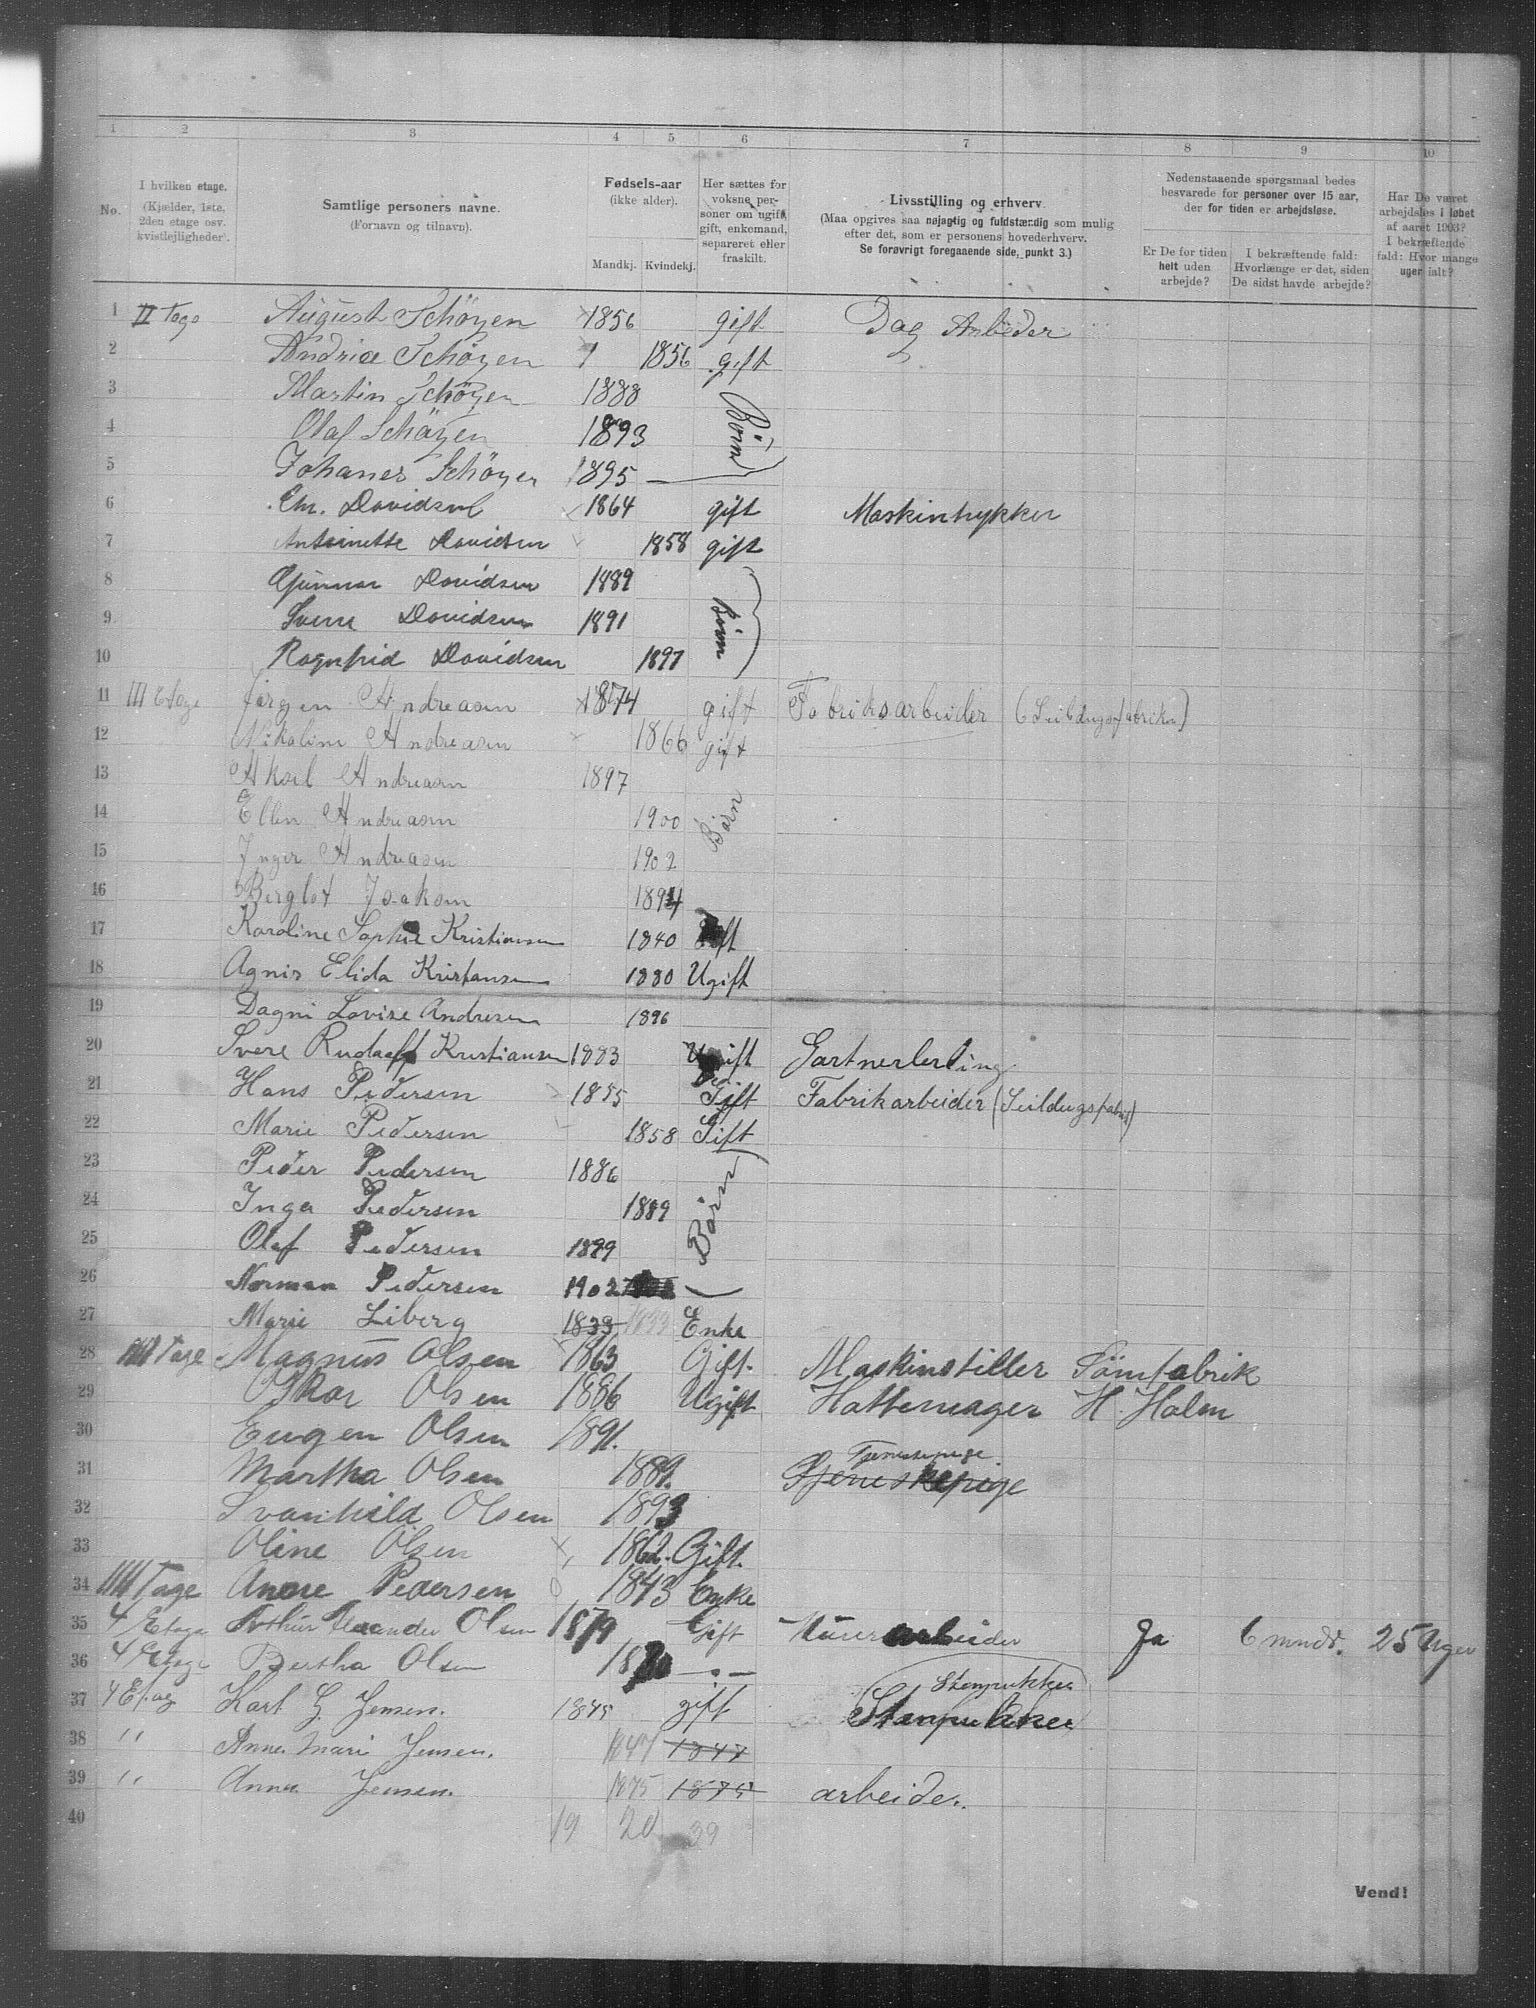 1 2 3 4 5 6 7 8 9 10
No.
I hvilken etage.
(Kjælder, 1ste,
2den etage osv.
kvistlejligheder).
Samtlige personers navne.
(Fornavn og tilnavn).
Fødsels-aar
(ikke alder).
Mandkj. Kvindekj.
Her sættes for
voksne per-
soner om ugift,
gift, enkemand,
separeret eller
fraskilt.
Livsstilling og erhverv.
(Maa opgives saa nøjagtig og fuldstændig som mulig
efter det, som er personens hovederhverv.
Se forøvrigt foregaaende side, punkt 3.)
Nedenstaaende spørgsmaal bedes
besvarede for personer over 15 aar,
der for tiden er arbejdsløse.
Er De for tiden
helt uden
arbejde?
I bekræftende fald:
Hvorlænge er det, siden
De sidst havde arbejde?
Har De været
arbejdsløs i løbet
af aaret 1903?
I bekræftende
fald: Hvor mange
uger ialt?
1 II Tage August Schöyen 1856 gift Dag Arbeder
2 Andrica Schöyen 1 1856 gift
3 Martin Schöyen 1888
4 Olaf Schöyen 1893 Börn
5 Johanes Schöyen 1895
6 Chr. Davidsen 1864 gift Maskintrykker
7 Antoinette Davidsen 1858 gift
8 Gunnar Davidsen 1889
9 Sverre Davidsen 1891 Börn
10 Ragnhild Davidsen 1897
11 III Etage Jørgen Andreasen 1874 gift Fabriksarbeider (Seildugsfabriken)
12 Nikoline Andreasen 1866 gift
13 Aksel Andreasen 1897
14 Ellen Andreasen 1900 Børn
15 Inger Andreasen 1902
16 Bergliot Isaksen 1894
17 Karoline Sophie Kristiansen 1840 Gift
18 Agnis Elida Kristansen 1880 Ugift
19 Dagni Lovise Andresen 1896
20 Svere Rudolf Kristiansen 1883 Ugift Gartnerlerling
21 Hans Pedersen 1855 Gift Fabrikarbeider (Seildugsfabrik)
22 Marie Pedersen 1858 Gift
23 Peder Pedersen 1886
24 Inga Pedersen 1889 Børn
25 Olaf Pedersen 1899
26 Norman Pedersen 1902
27 Marie Liberg 1833 1833 Enke
28 IIII Tage Magnus Olsen 1863 Gift. Maskinstiller Sömfabrik
29 Oskar Olsen 1886 Ugift Hattemager H. Holm
30 Eugen Olsen 1891.
31 Martha Olsen 1889. Tjeneskepige Tjenestepige.
32 Svanhild Olsen 1893
33 Oline Olsen 1862. Gift.
34 IIII Tage Anne Pedersen 1843 Enke
35 4 Etage Arthur Alexander Olsen 1879 Gift Murerarbeider Ja 6 mndr. 25 Uger
36 4 Etage Bertha Olsen —"—
37 4 Etag Karl G. Jensen. 1845 gift Stenpukker Stenpukker
38 " Anne Mari Jensen. 1847 1847
39 " Anna Jensen. 1875 1875 arbeider.
40 19 20 39
Vend!